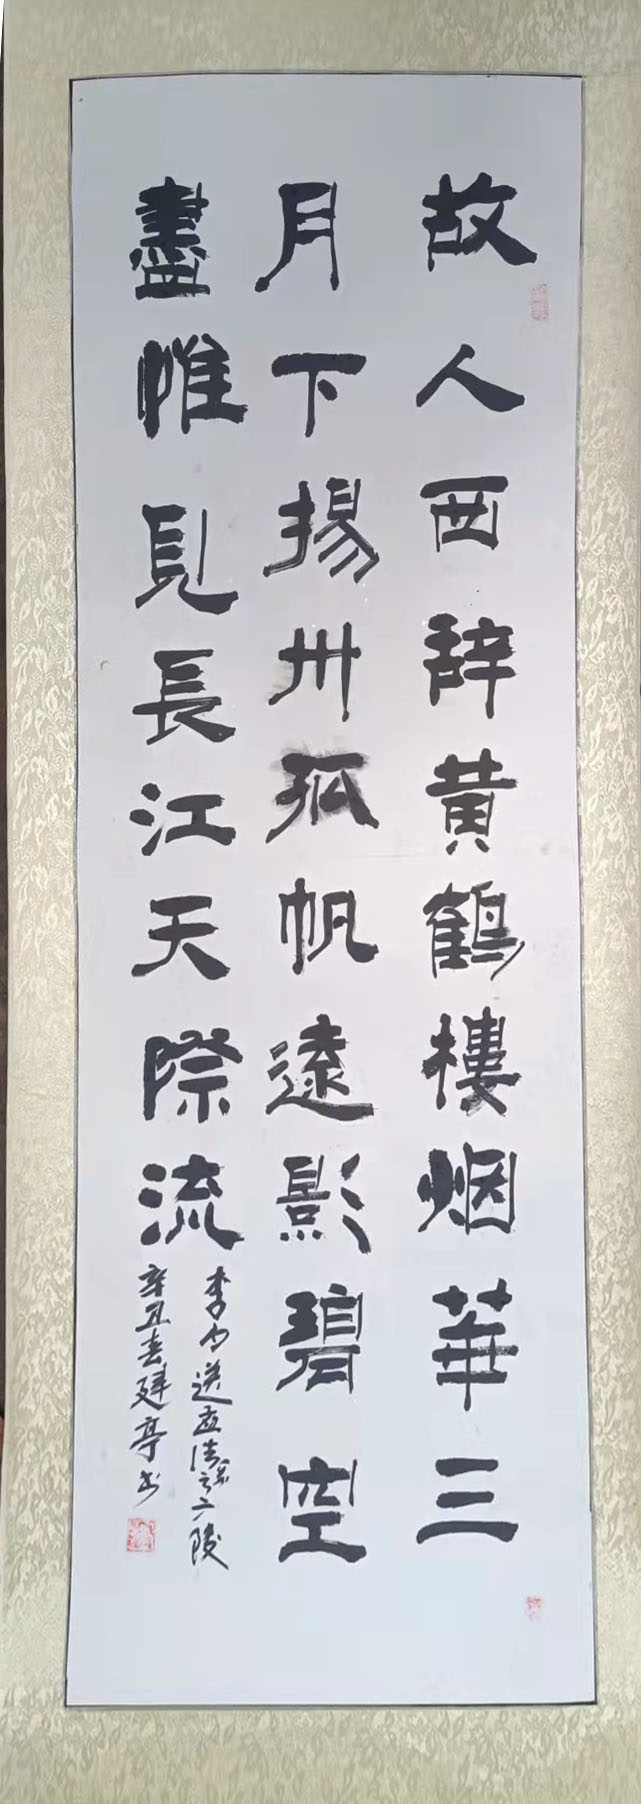 故人西辞黄鹤樓烟華三
月下揚州孤帆遠影碧空
盡惟見長江天際流
李白送孟浩然之广陵
辛丑春建亭书